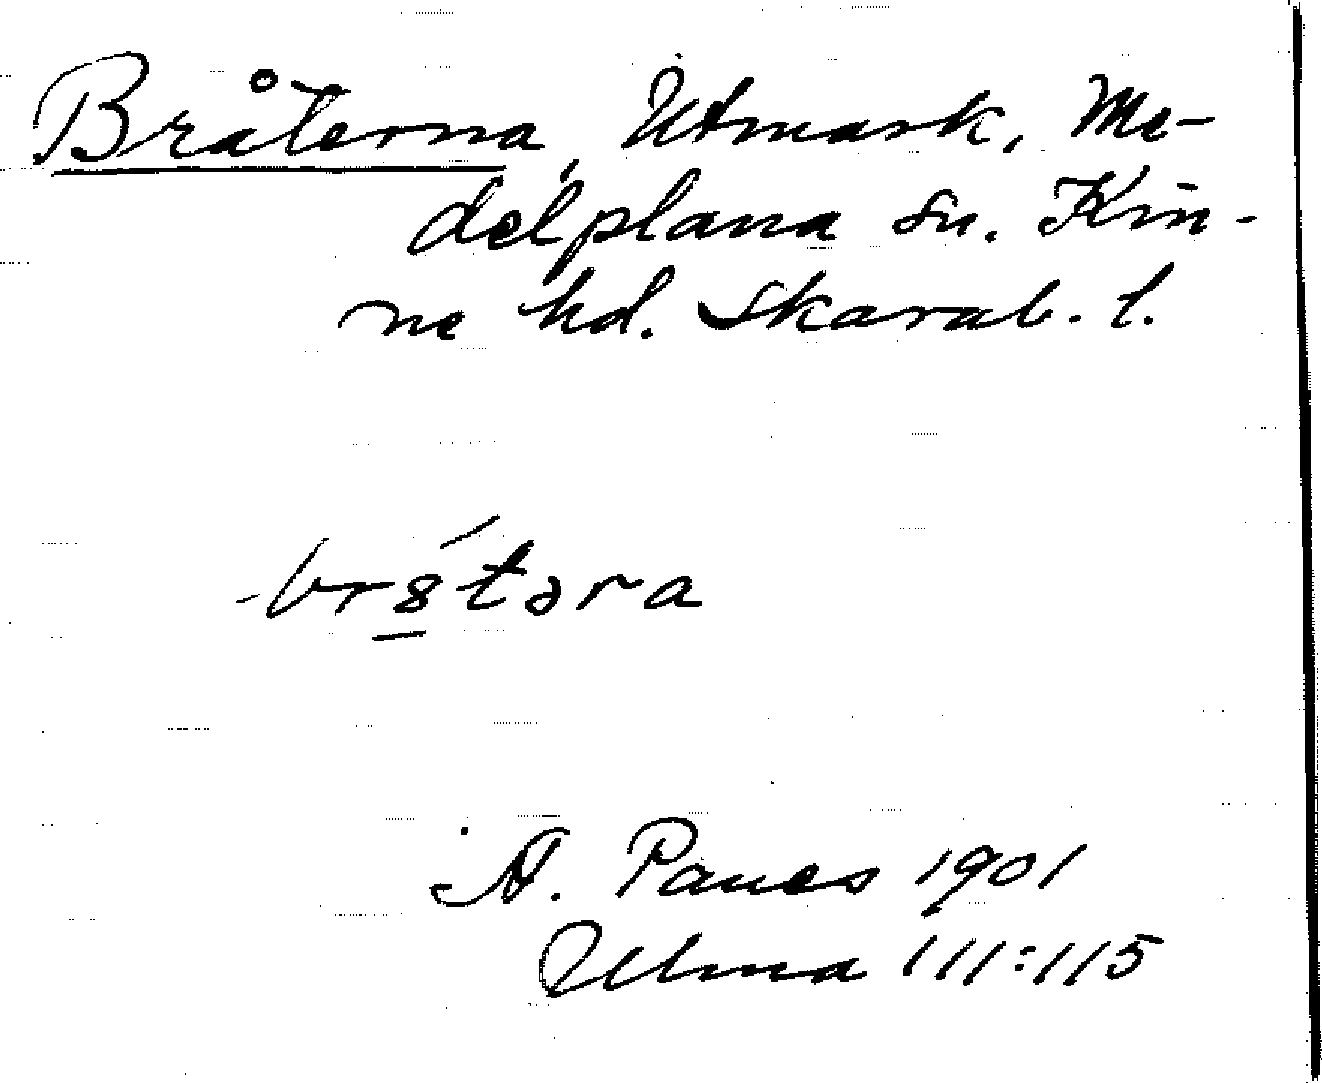 Bråterna, Utmark, Me-
delplana sn. Kin-
ne hd. Skarab. l.
br8́təra
A. Paues 1901
Ulma 111:115